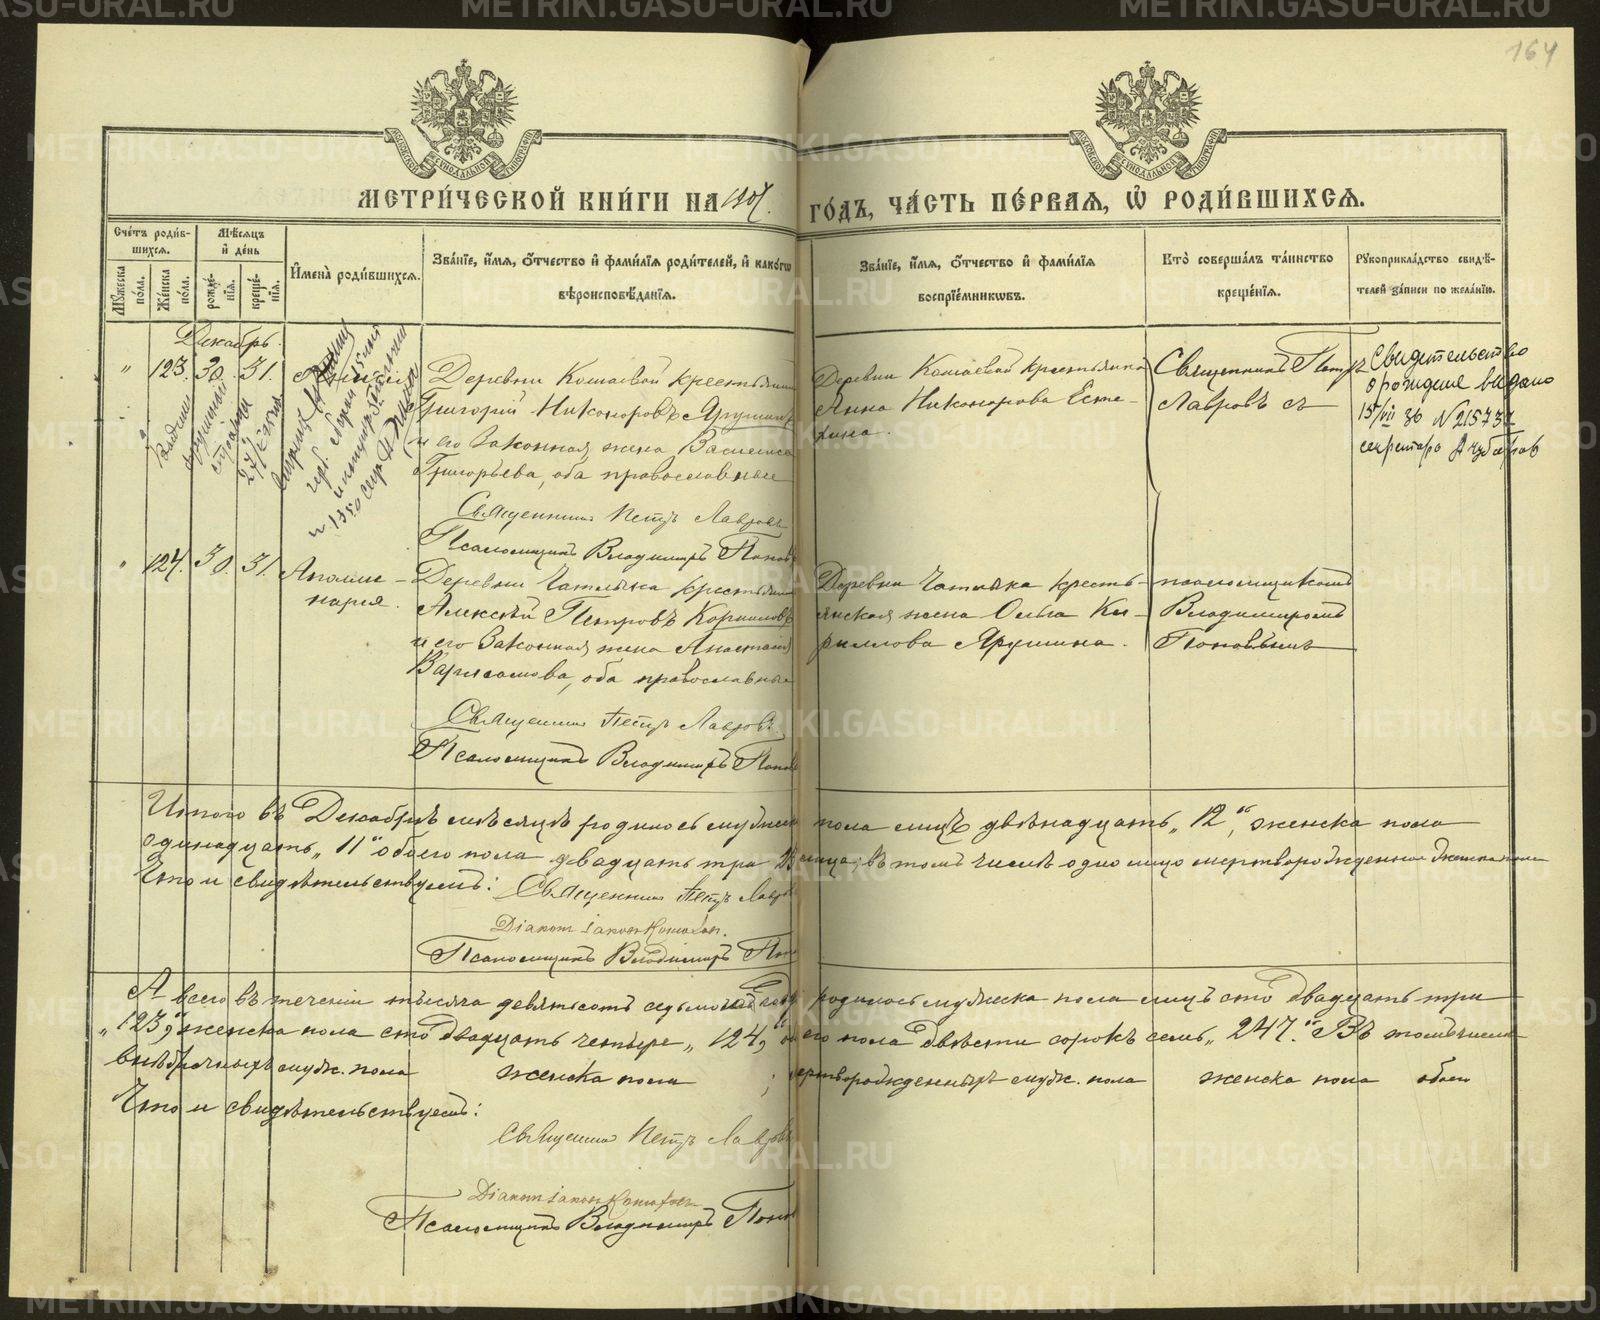 164
МЕТРИ́ЧЕСКОЙ КНИ́ГИ НА 1907. ГО́ДЪ, ЧА́СТЬ ПЕ́РВАЯ, Ѡ РОДИ́ВШИХСЯ.
Сче́тъ роди́вшихся.
Мꙋжеска по́ла.
Же́нска по́ла.
Мѣ́сяцъ и҆ де́нь
рожде́нїя.
креще́нїя.
И҆мена̀ роди́вшихся.
Зва́нїе, и҆́мя, ѻ҆́тчество и҆ фами́лїя роди́телей, и҆ како́гѡ
вѣроисповѣ́данїя.
Зва́нїе, и҆́мя, ѻ҆́тчество и҆ фами́лїя
воспрїе́мникѡвъ.
Кто̀ соверша́лъ та́инство
креще́нїя.
Рꙋкоприкла́дство свидѣ́-
телей за́писи по жела́нїю.
Декабрь.
" 123. 30. 31.
Деревни Комаевой крестьянинъ
Григорій Никаноровъ Ярушинъ
и его законная жена Василиса
Григорьева, оба православные
Священникъ Петръ Лавровъ
Псаломщикъ Владимиръ Поповъ
Деревни Комаевой крестьянка
Анна Никанорова Есте-
хина.
Священникъ Петръ
Лавровъ съ
Свидетельство
о рождение выдано
15/VII 36 N 215737
секретарь
" 124. 30. 31. Аполли-
нарія.
Деревни Чатлыка крестьянинъ
Алексѣй Петровъ Кормиловъ
и его законная жена Анастасія
Варлаамова, оба православные
Священникъ Петръ Лавровъ
Псаломщикъ Владимиръ Поповъ
Деревни Чатлыка кресть-
янская жена Ольга Ки-
риллова Ярушина.
псаломщикомъ
Владимиромъ
Поповымъ
Итого въ Декабрѣ мѣсяцѣ родилось мужеска пола лицъ двѣнадцать „12“, женска пола
одинадцать „11“ обоего пола двадцать три 23 лица; въ томъ числѣ одно лицо мертворожденное женска пола
Что и свидѣтельствуемъ: Священникъ Петръ Лавровъ
Псаломщикъ Владимиръ Поповъ
А всего въ теченіи тысяча девятьсотъ седьмого года родилось мужеска пола лицъ сто двадцать три
„123“, женска пола сто двадцать четыре „124“, обоего пола двѣсти сорокъ семь „247.“ Въ томъ числѣ
внѣбрачныхъ муж. пола женска пола ; мертворожденныхъ муж. пола женска пола обоего
Что и свидѣтельствуемъ:
Священникъ Петръ Лавровъ
Псаломщикъ Владимиръ Поповъ
METRIKI.GASO-URAL.RU